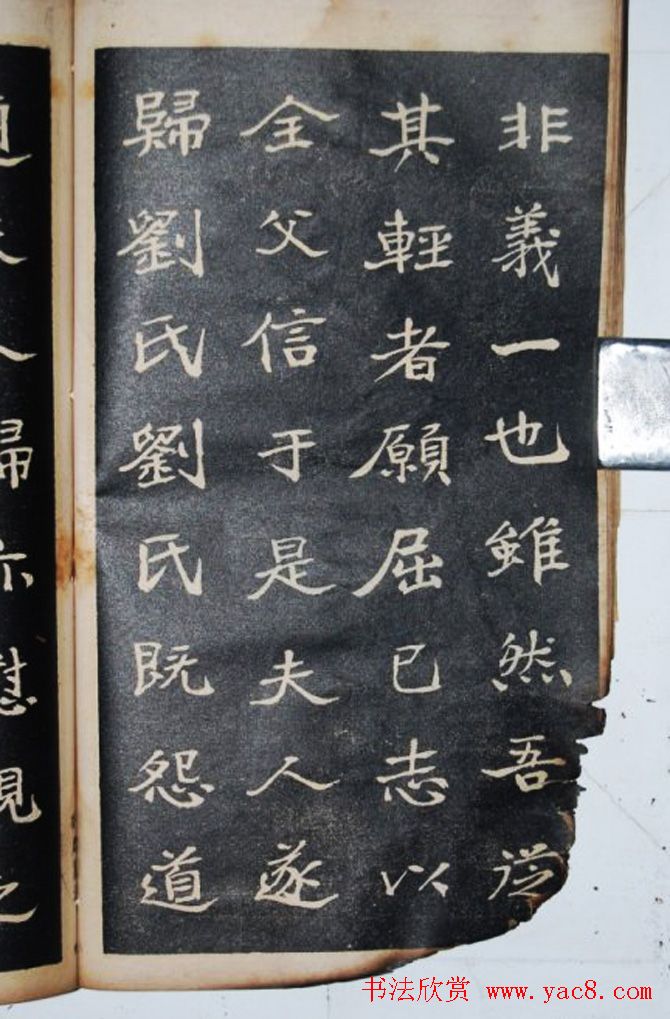 非義一也雖然吾從
其輕者願屈己志以
全父信于是夫人遂
歸劉氏劉氏既怨道
夫人歸亦慰視之
书法欣赏 www.yac8.com